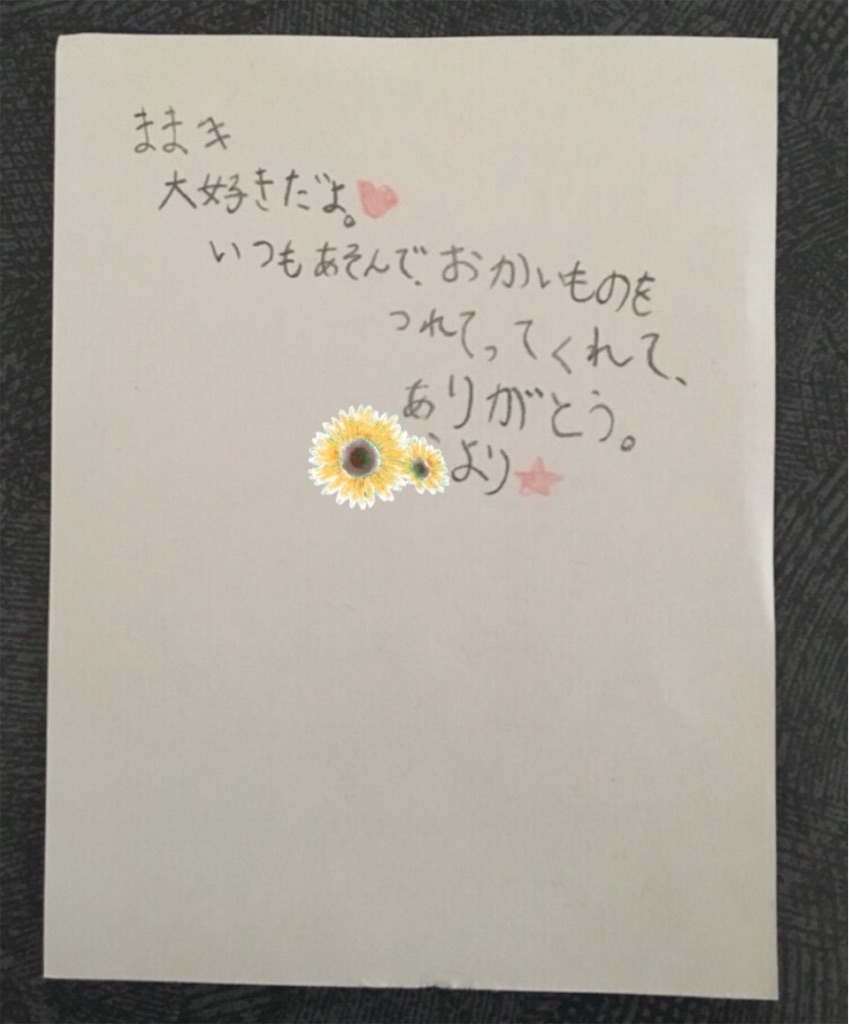 ままへ
大好きだよ。
いつもあそんで、おかいものを
つれてってくれて、
ありがとう。
より